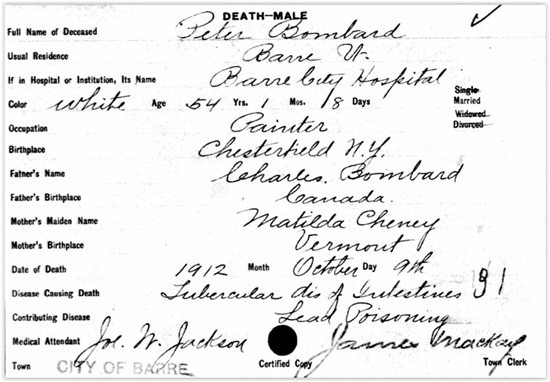 DEATH—MALE
Full Name of Deceased Peter Bombard
Usual Residence Barre Vt.
If in Hospital or Institution, Its Name Barre City Hospital
Color White Age 54 Yrs. 1 Mos. 8 Days Single Married Widowed Divorced
Occupation Painter
Birthplace Chesterfield N.Y.
Father's Name Charles. Bombard
Father's Birthplace Canada.
Mother's Maiden Name Matilda Cheney
Mother's Birthplace Vermont
Date of Death 1912 Month October Day 9th
Disease Causing Death Tubercular dis of Intestines 31
Contributing Disease Lead Poisoning
Medical Attendant Joe. W. Jackson James Mackay
Town CITY OF BARRE Certified Copy Town Clerk